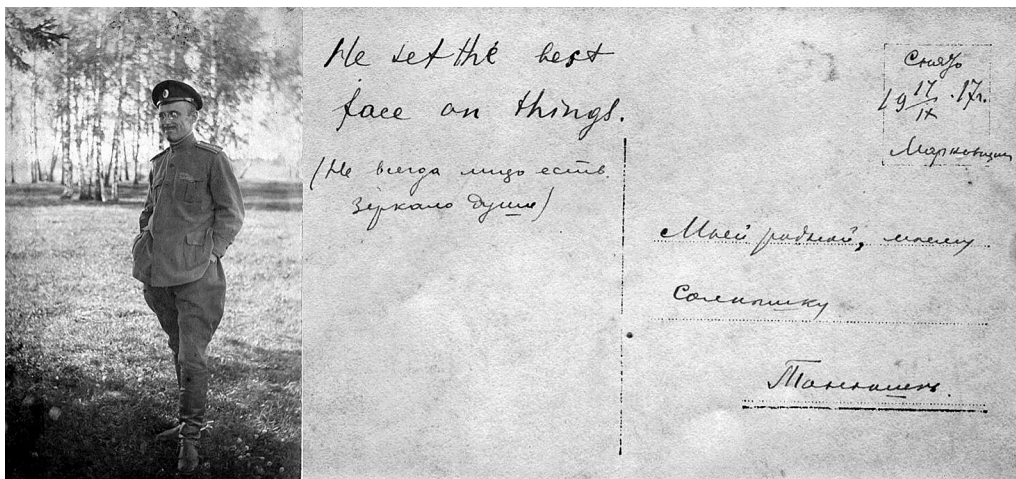 He set the best
face on things.
(Не всегда лицо есть
зеркало души)
Снято
19 17/IX 17г.
Моей родной, моему
Солнышку